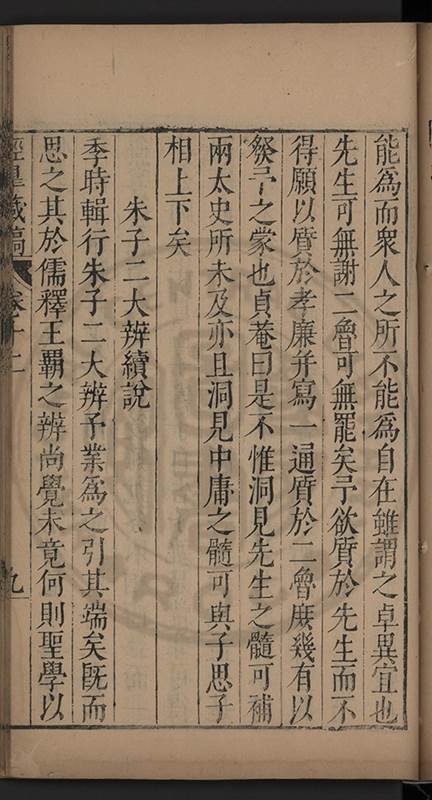 能爲而衆人之所不能爲自在雖謂之卓異宜也
先生可無謝二魯可無罷矣予欲質於先生而不
得願以質於孝廉并寫一通質於二魯庶幾有以
發予之蒙也貞菴曰是不惟洞見先生之髓可補
兩太史所未及亦且洞見中庸之髓可與子思子
相上下矣
朱子二大辨續說
季時輯行朱子二大辨予業爲之引其端矣旣而
思之其於儒釋王覇之辨尚覺未竟何則聖學以
涇臯藏稿 卷十二 九